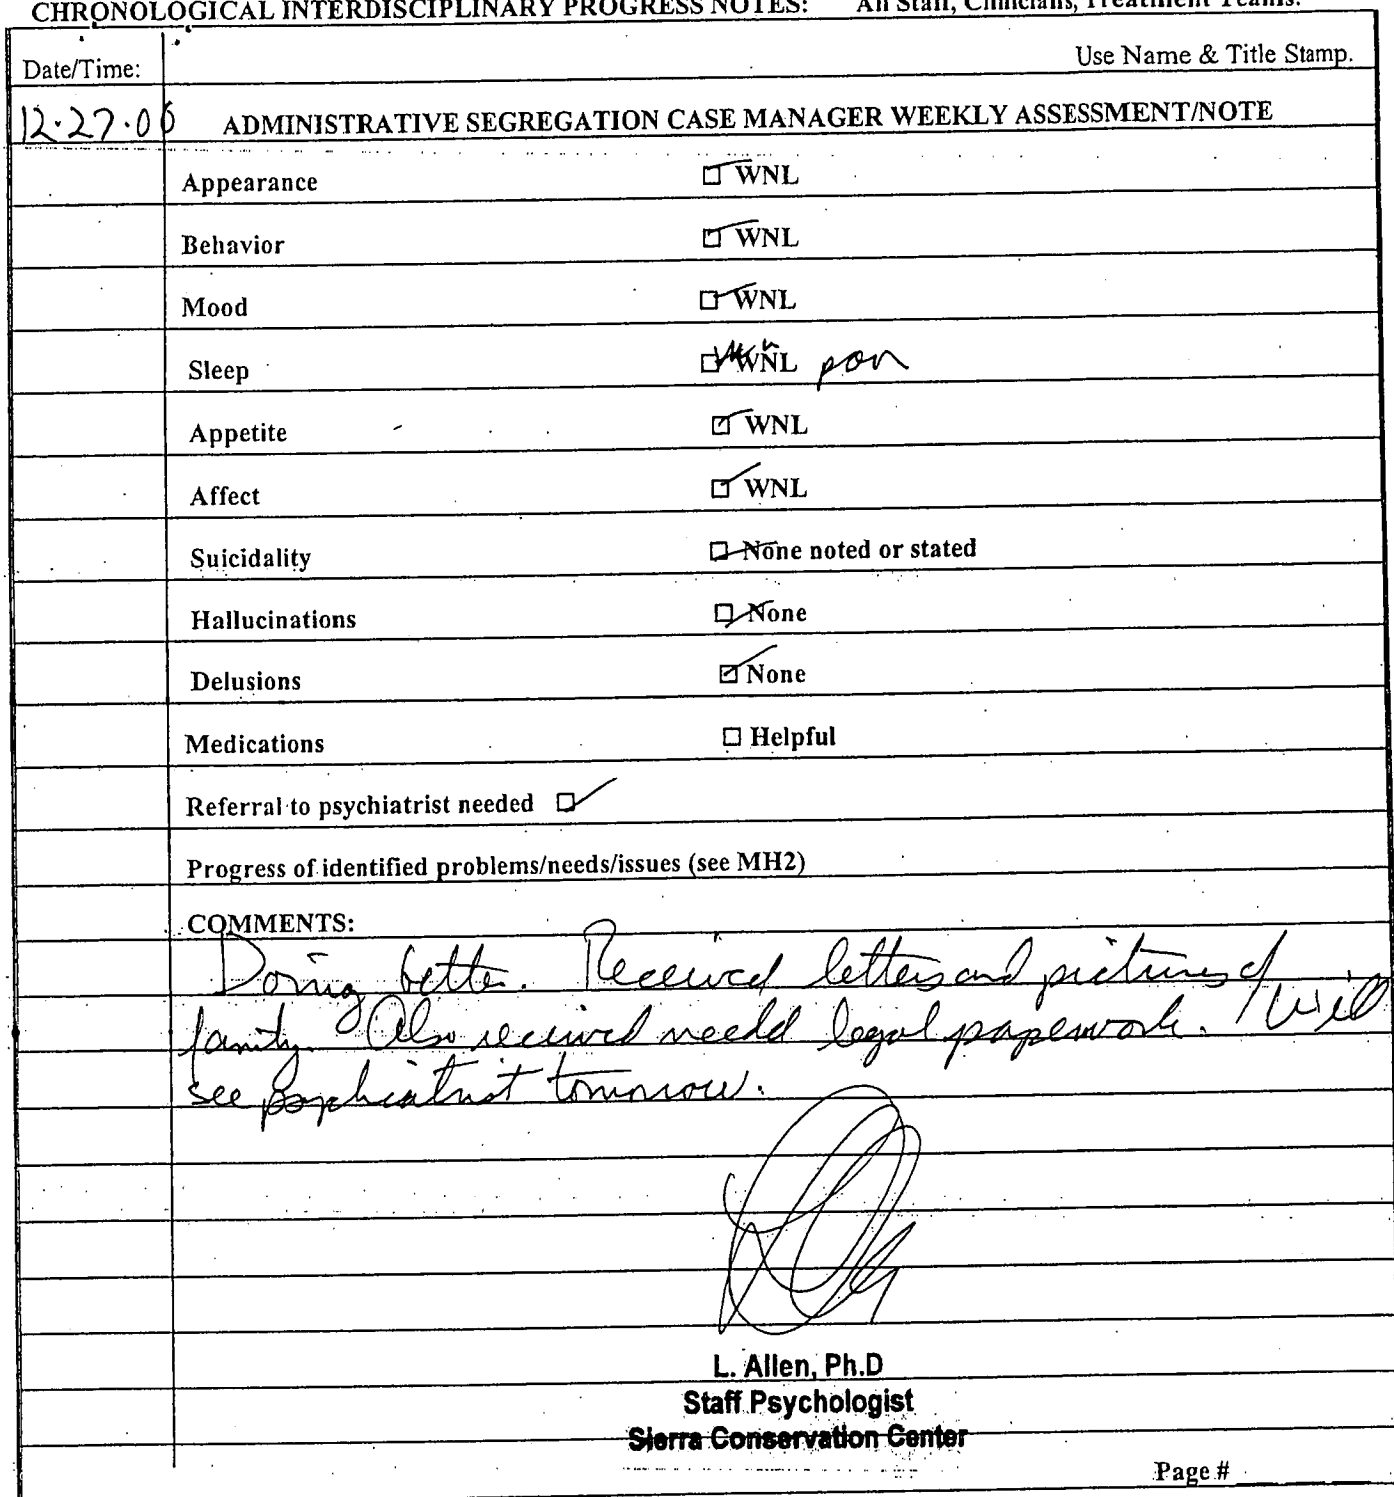 CHRONOLOGICAL INTERDISCIPLINARY PROGRESS NOTES: All Staff, Clinicians, Treatment Teams.
Date/Time: Use Name & Title Stamp.
12.27.06 ADMINISTRATIVE SEGREGATION CASE MANAGER WEEKLY ASSESSMENT/NOTE
Appearance WNL
Behavior WNL
Mood WNL
Sleep WNL
Appetite WNL
Affect WNL
Suicidality None noted or stated
Hallucinations None
Delusions None
Medications Helpful
Referral to psychiatrist needed
Progress of identified problems/needs/issues (see MH2)
COMMENTS:
Doing better. Received letters and pictures of
family. Also received needd legal paperwork. Will
see psychiatrist tomorrow.
L. Allen, Ph.D
Staff Psychologist
Sierra Conservation Center
Page #